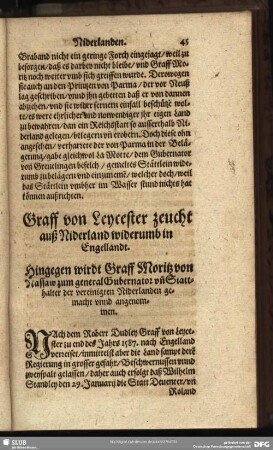 Niderlanden. 45
Braband nicht ein geringe Forch eingejagt / weil zu
besorgen / daß es darbey nicht bleibe / und Graff Mo-
ritz noch weiter umb sich greiffen wurde. Derowegen
sie auch an den Printzen von Parma / der vor Neuß
lag geschriben / unnd ihn gebetten daß er von dannen
abziehen / und sie wider fernern einfall beschütze wöl-
te / es were ehrlicher und notwendiger ihr eigen Land
zu bewahren / dan ein Reichsstatt so ausserhalb Ni-
derland gelegen / belegern un erobern. Doch diese ohn
angesehen / verharrete der von Parma in der Belä-
gerung / gabe gleichwol la Motte / dem Gubernator
von Greveningen befelch / gemeltes Stättlein wide-
rumb zu belägern und einzunemē / welcher doch / weil
das Stättlein rundumbher im Wasser stund nichts hat
können außrichten.
Graff von Leycester zeucht
auß Niderland widerumb in
Engellandt.
Hingegen wirdt Graff Moritz von
Nassaw zum general Gubernator uñ Statt-
halter der vereinigten Niderlanden ge-
macht unnd angenom-
men.
NAch dem Robert Dudley Graff von Leyce-
ster zu end des Jahrs 1587. nach Engelland
verreiset / inmittelst aber die Land sampt dero
Regierung in grosser gefahr / Beschwernussen unnd
zweyspalt gelassen / daher auch erfolgt daß Wilhelm
Standley den 29. Januarij die Statt Deventer / un
Roland
SLUB